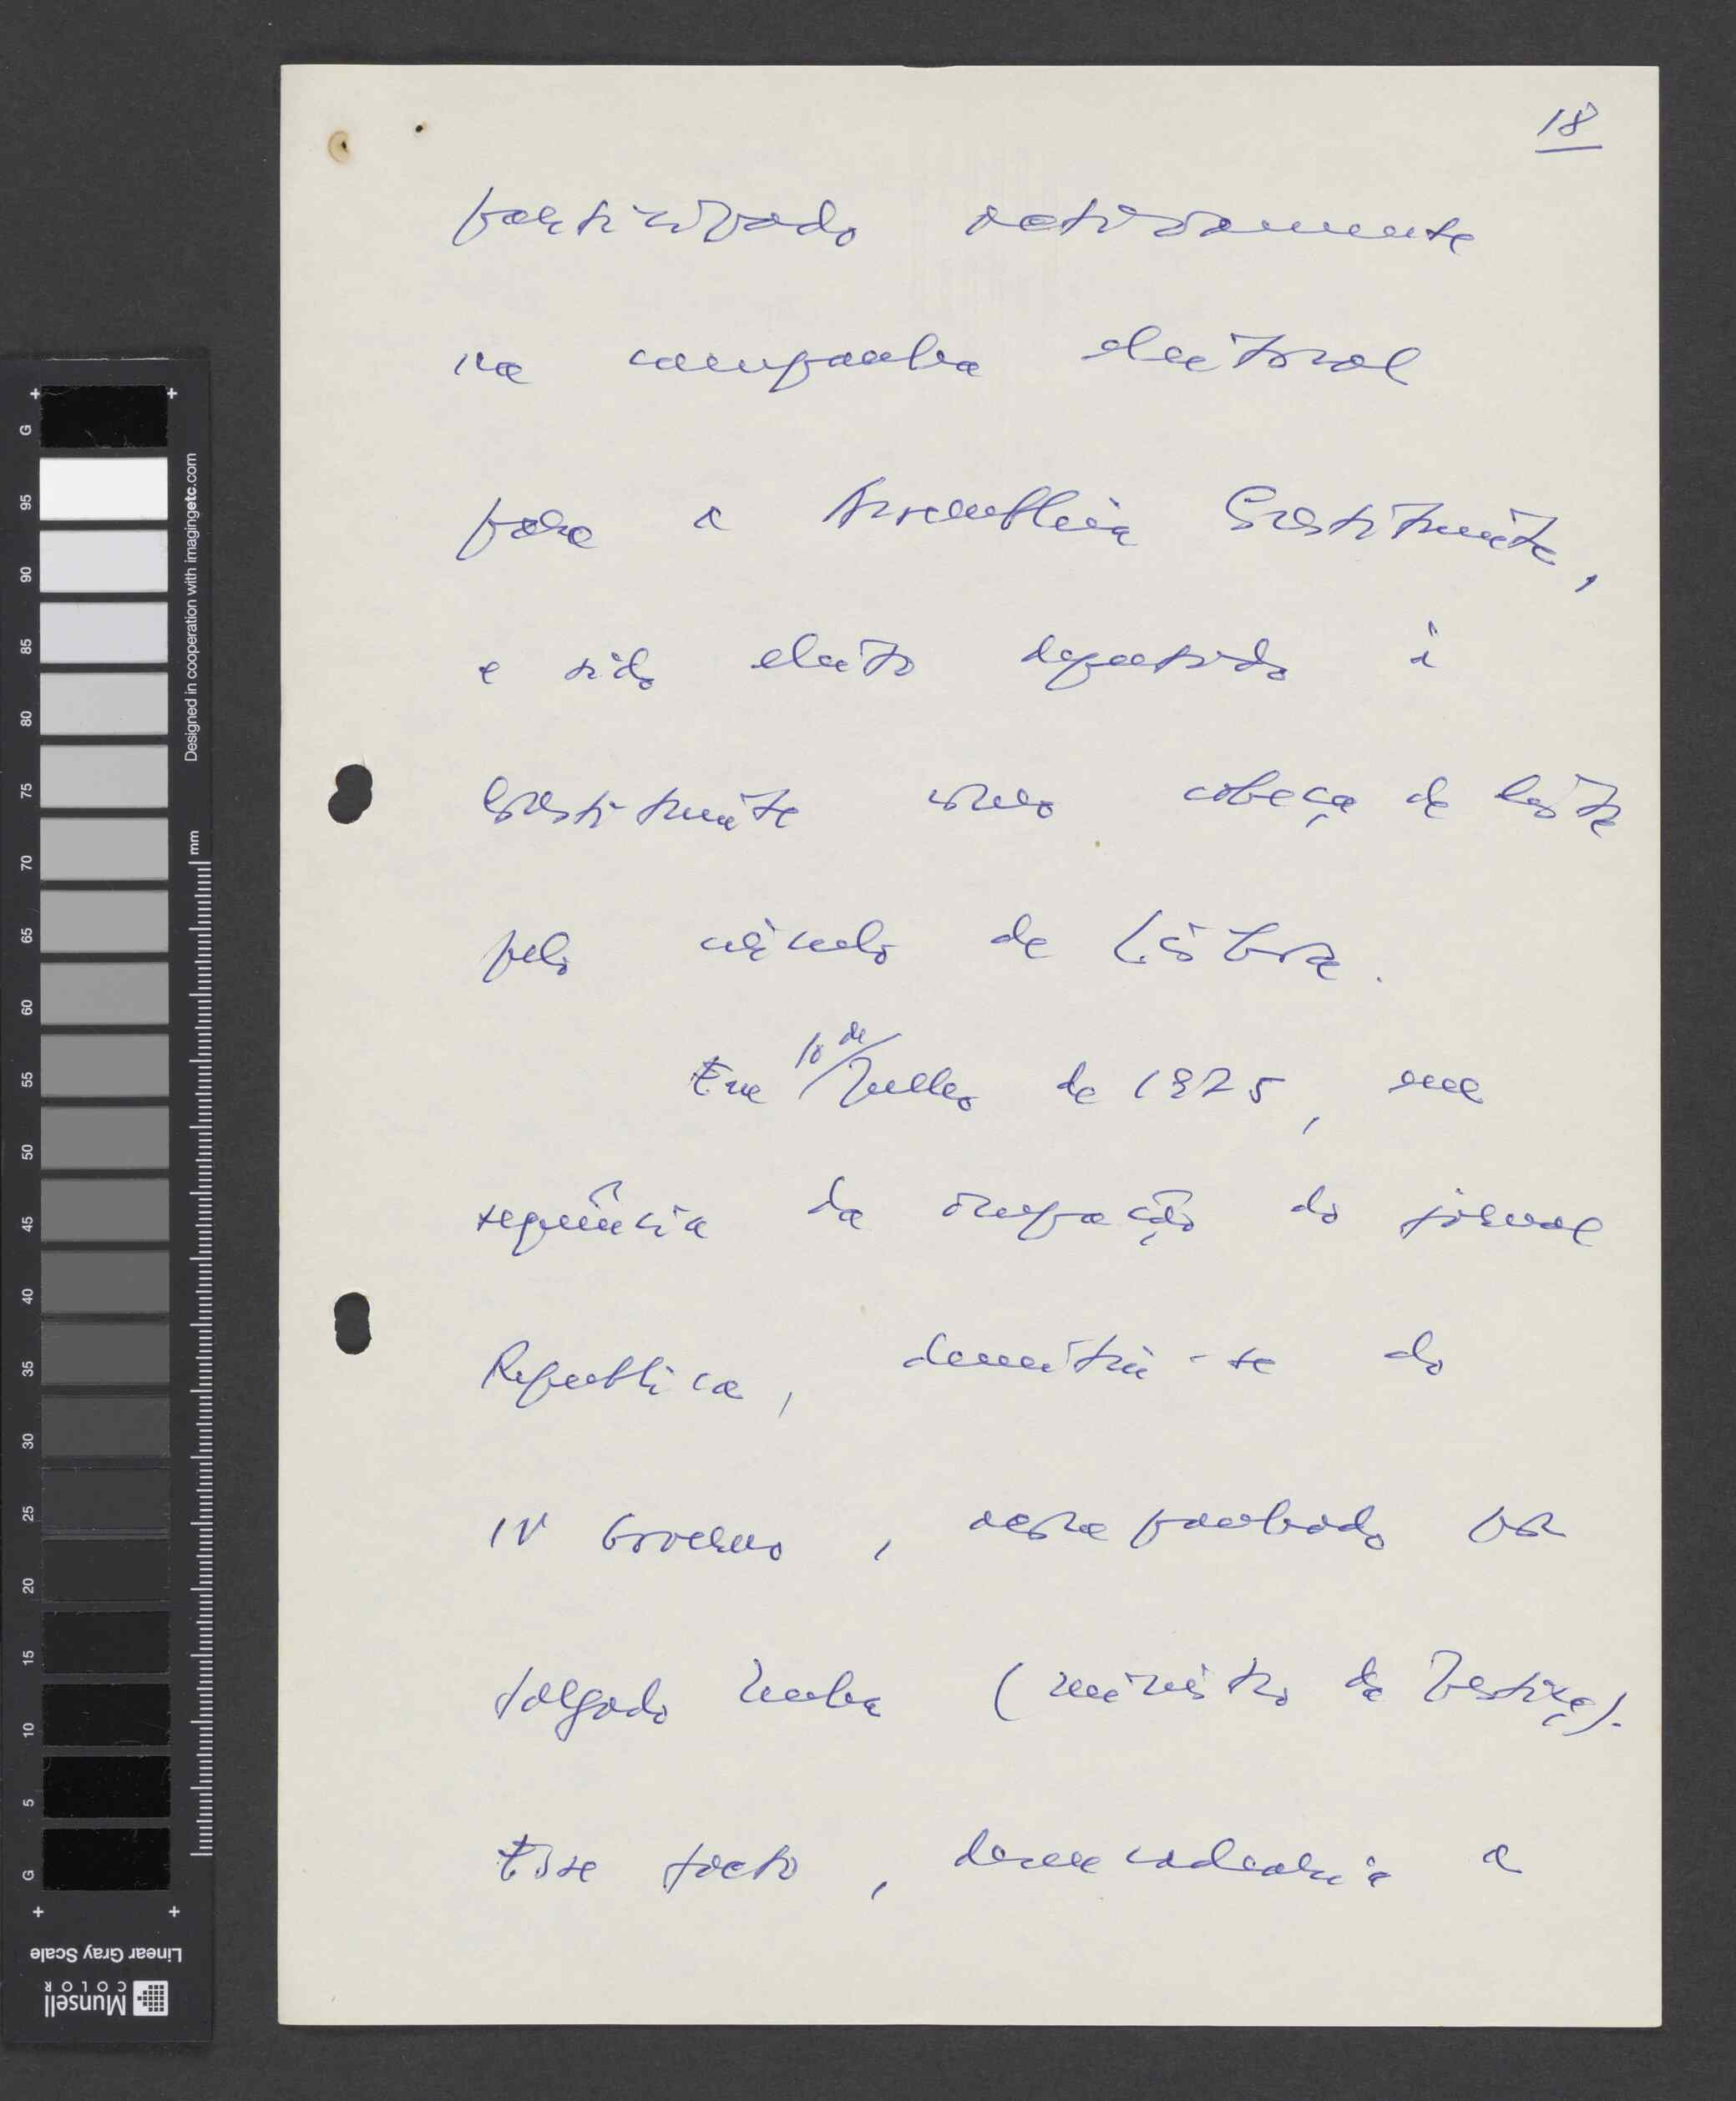 18
participado activamente
na campanha eleitoral
para a Assembleia Constituinte,
e sido eleito deputado à
Constituinte como cabeça de lista
pelo círculo de Lisboa.
Em 10 de Julho de 1975, na
sequência da ocupação do jornal
República, demitiu-se do
IV Governo, acompanhado por
Salgado Zenha (ministro da Justiça).
Esse facto, desencadearia a
G 95 90 85 80 75 70 65 60 55 50 45 40 35 30 25 20 15 10 5 G
Designed in cooperation with imagingetc.com
mm
Linear Gray Scale
Munsell
COLOR